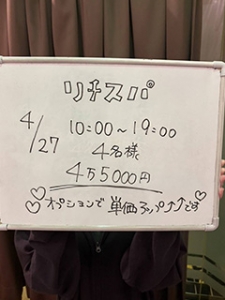 リチスパ
4/27
10:00～19:00
4名様
4万5000円
♡オプションで単価アップ↑↑です♡